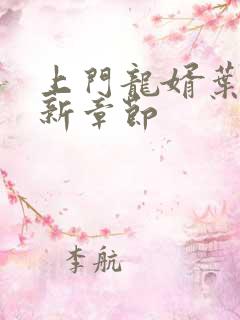 上門龍婿葉
新章節
李航